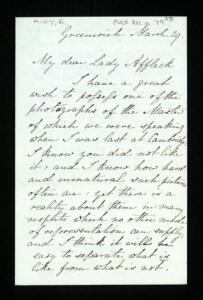 AIRY, R
Greenwich March 29.
My dear Lady Affleck
I have a great
wish to possess one of the
photographs of the Master
of which we were speaking
when I was last at Cambridge.
I know you did not like
it: and I know how hard
and unnatural such pictures
often are; yet there is a
reality about them in many
respects which no other mode
of representation can supply
and I think it will be
easy to separate what is
like from what is not.